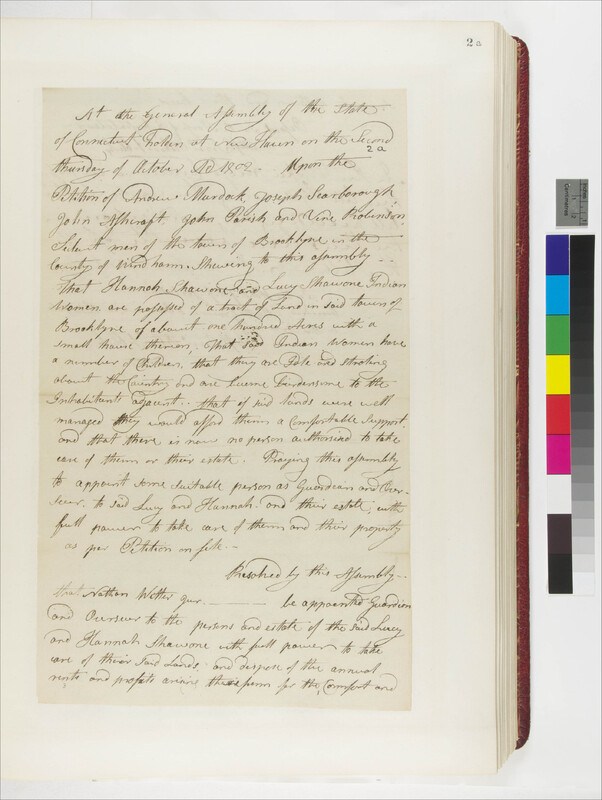 2a
At the General Assembly of the State
of Connecticut holden at New Haven on the Second
2a
thursday of October AD 1802. Upon the
Petition of Andrew Murdock, Joseph Scarborough,
John Ashcraft, John Parish and Vine Robinson,
Select men of the town of Brooklyne in the
County of Windham. Shewing to this assembly
that Hannah Shawone, and Lucy Shawone Indian
Women are possessed of a tract of Land in said town of
Brooklyne of about one hundred Acres with a
small house thereon, That said Indian Women have
a number of Children, that they are Idle and stroling
about the Country and are burdensome to the
Inhabitants adjacent. that if said lands were well
managed they would afford them a Comfortable Support.
and that there is now no person authorised to take
care of them or their estate. Praying this assembly
to appoint some suitable person as Guardian and Over-
seer, to said Lucy and Hannah and their estate, with
full power to take care of them and their property
as per Petition on file.
Resolved by this Assembly
that Nathan be appointed Guardian
and Overseer to the persons and estate of the said Lucy
and Hannah Shawone with full power to take
care of their said Lands, and dispose of the annual
rents and profits for the Comfort and